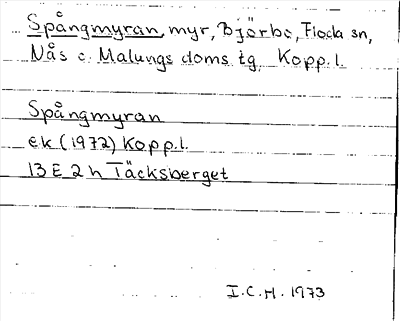 Spångmyran, myr, Björbo, Floda sn,
Nås o. Malungs doms. tg. Kopp. l.
Spångmyran
ek (1972) Kopp.l.
13 E 2 h Täcksberget
I.C.H. 1973